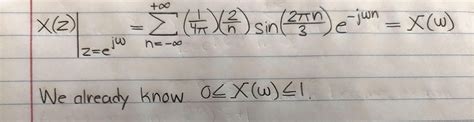 X(z)|_{z=e^{jω}} = \sum_{n=-∞}^{+∞} (1/4π)(2/n) sin(2πn/3) e^{-jωn} = X(ω)
We already know 0≤X(ω)≤1.